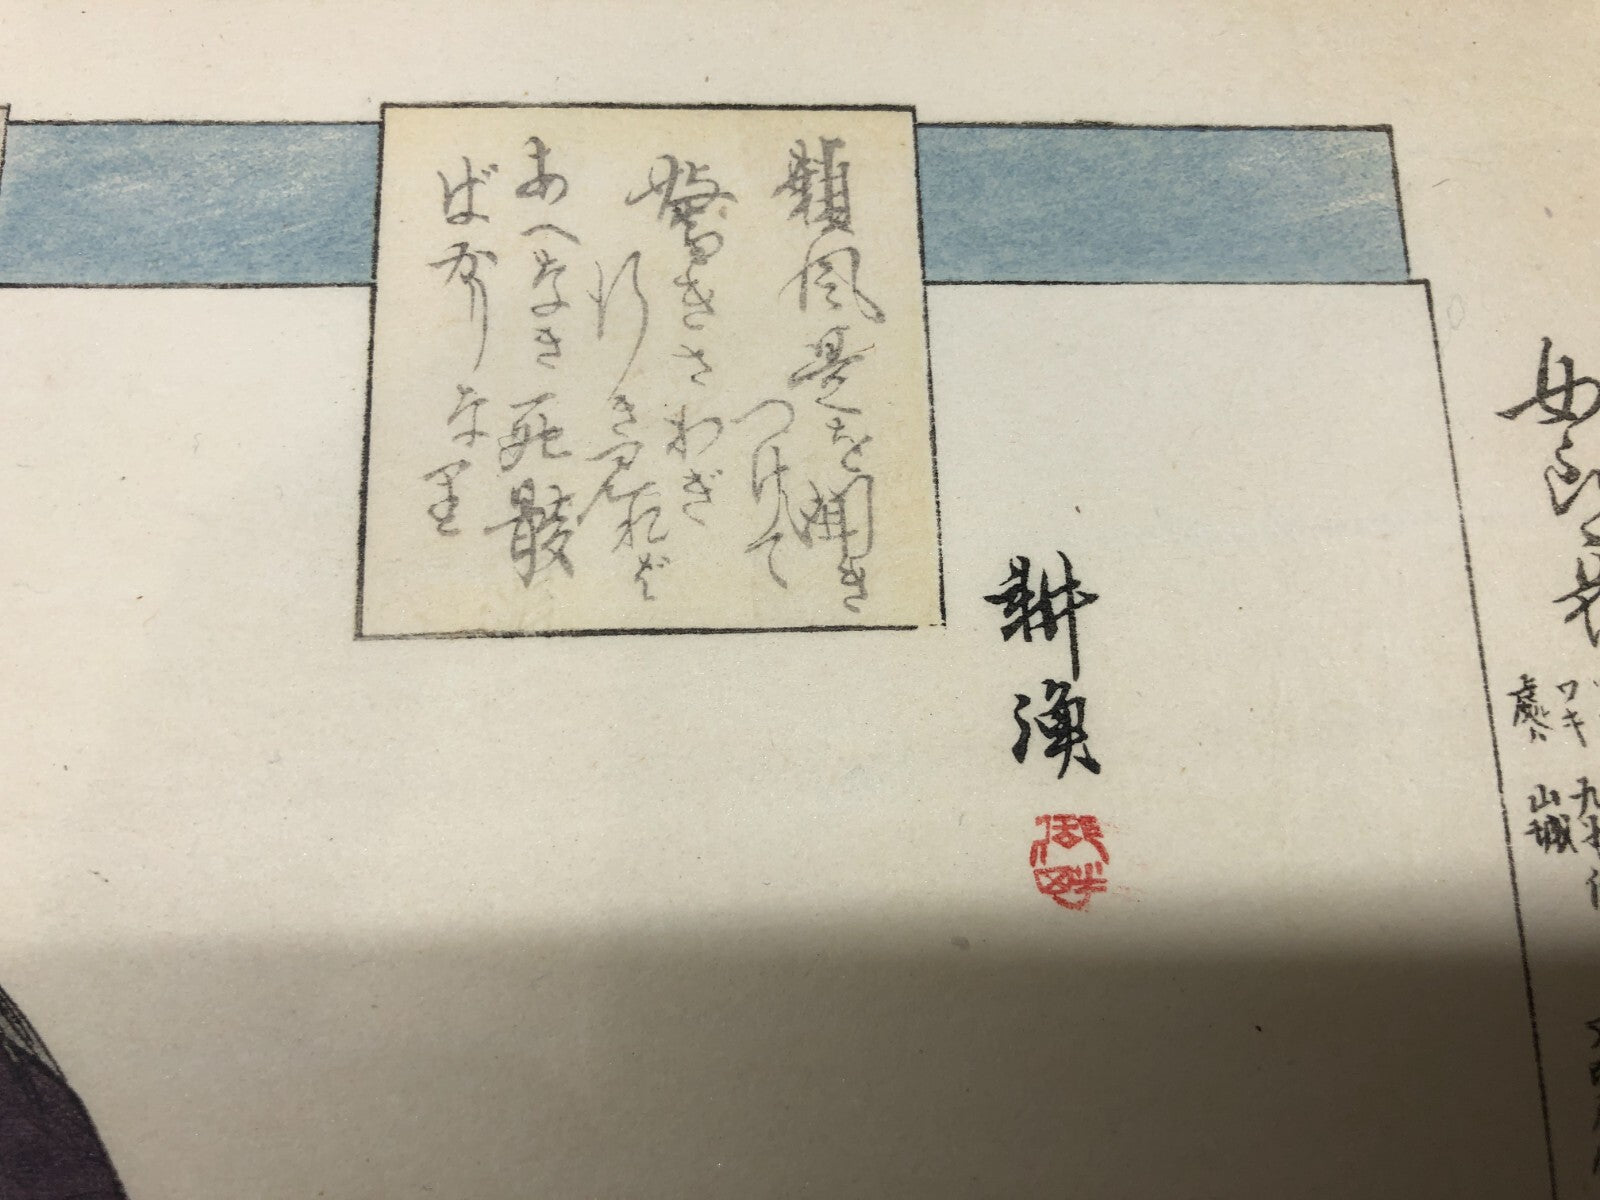 女郎花
ワキ 九州
處ハ 山城
頼風是を聞き
つけて
驚きさわぎ
行き見れば
あへなき死骸
ばかりなり
耕漁